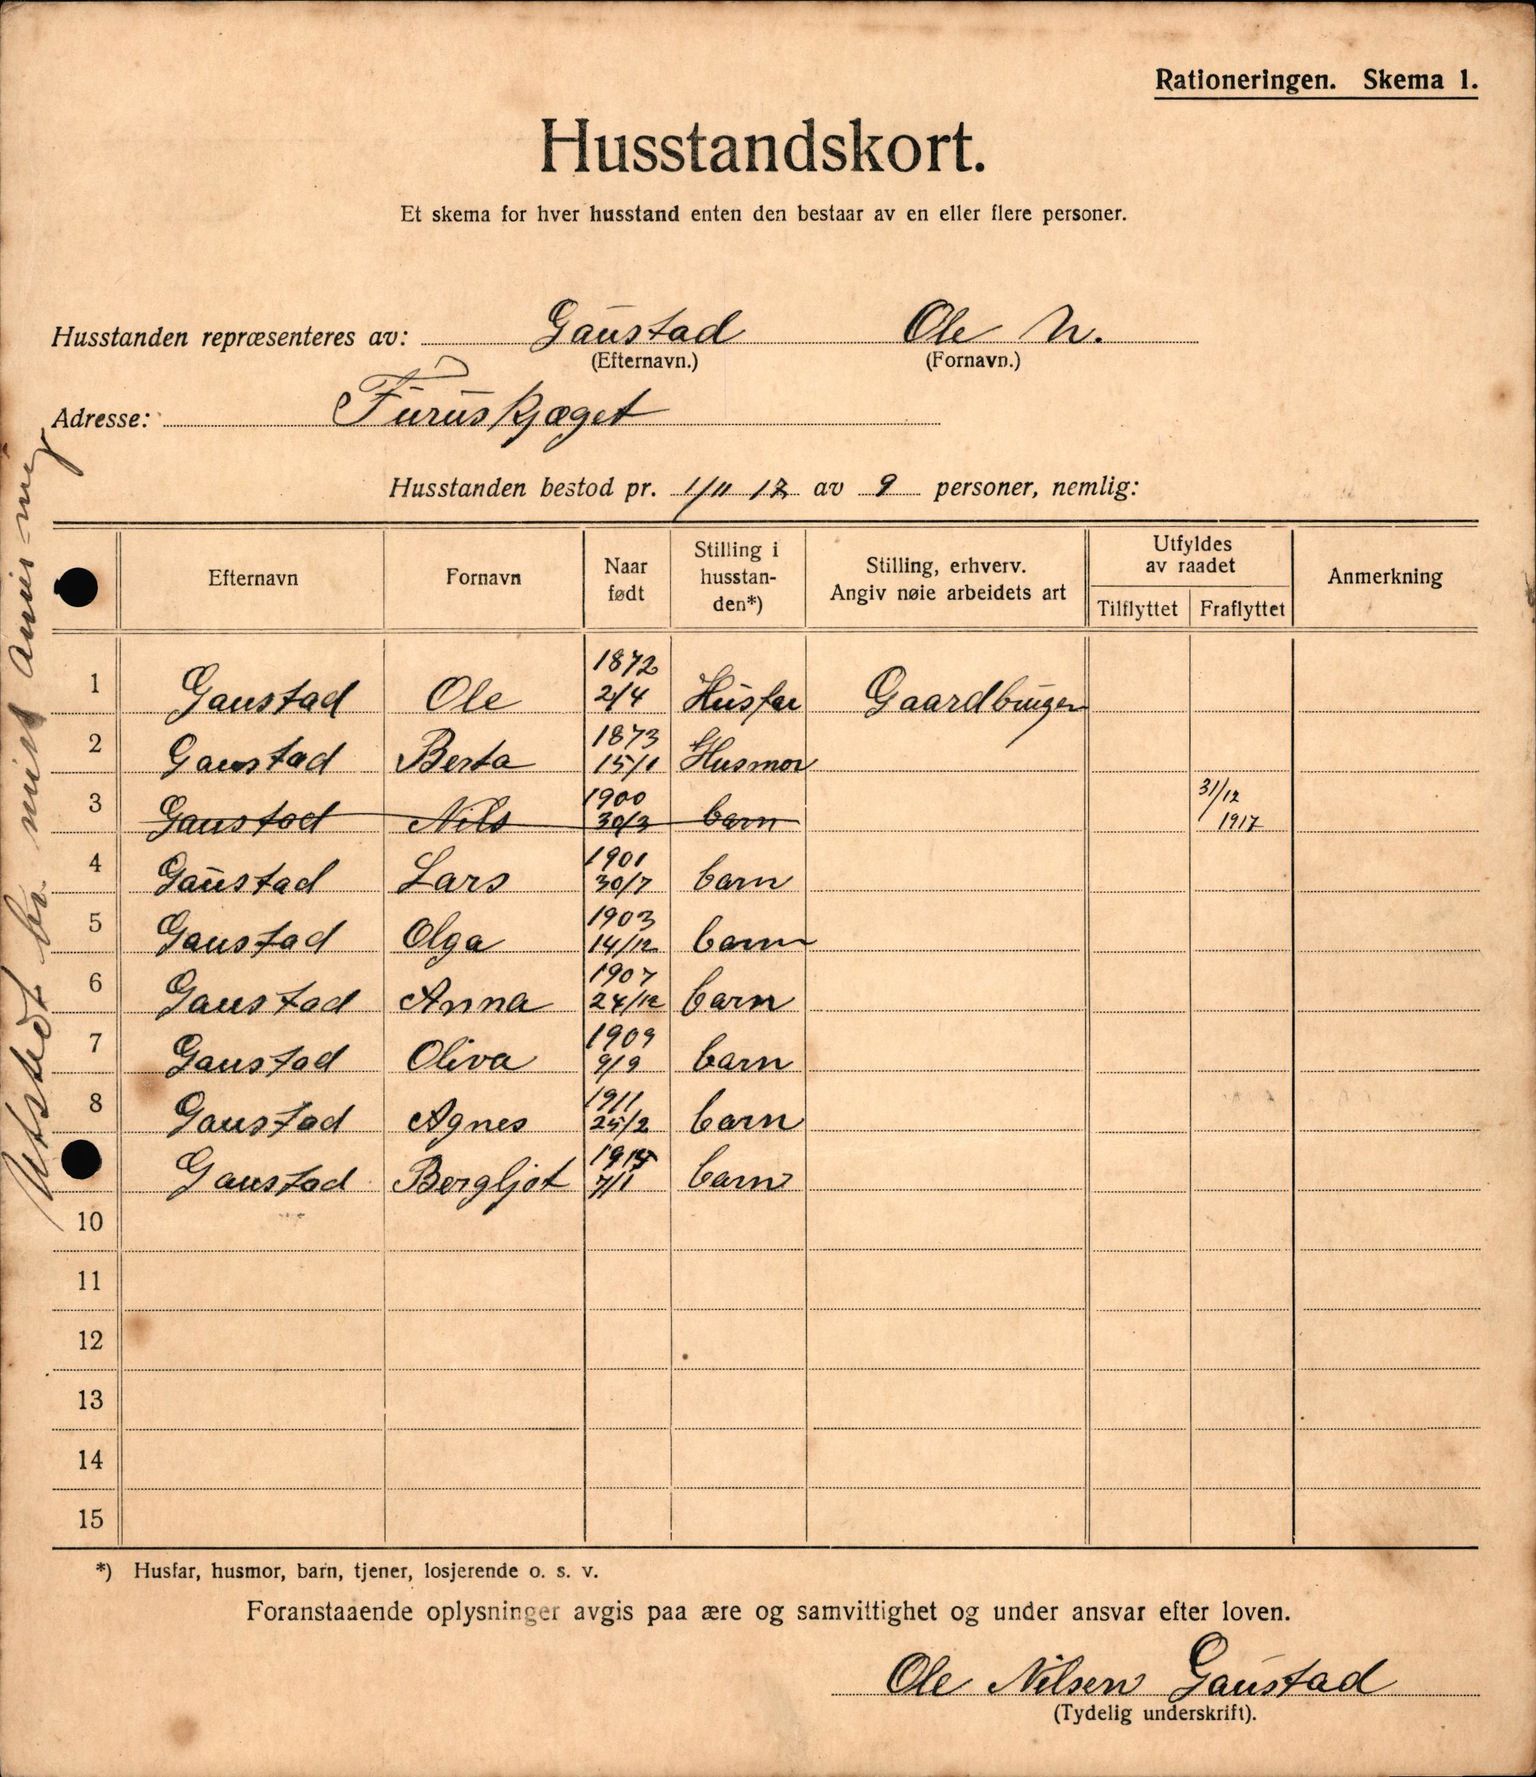 Rationeringen. Skema 1.
Husstandskort.
Et skema for hver husstand enten den bestaar av en eller flere personer.
Husstanden repræsenteres av: Gaustad Ole N.
(Efternavn.) (Fornavn.)
Adresse: Furuskjæget
Husstanden bestod pr. 1/11 17 av 9 personer, nemlig:
Efternavn Fornavn Naar født Stilling i husstan-den*) Stilling, erhverv. Angiv nøie arbeidets art Utfyldes av raadet Tilflyttet Fraflyttet Anmerkning
1 Gaustad Ole 1872 2/4 Husfar Gaardbruger
2 Gaustad Berta 1873 15/1 Husmor
3 Gaustad Nils 1900 30/3 barn 31/12 1917
4 Gaustad Lars 1901 30/7 barn
5 Gaustad Olga 1903 14/12 barn
6 Gaustad Anna 1907 24/12 barn
7 Gaustad Oliva 1909 9/9 barn
8 Gaustad Agnes 1911 25/2 barn
Gaustad Bergljot 1915 7/1 barn
10
11
12
13
14
15
*) Husfar, husmor, barn, tjener, losjerende o. s. v.
Foranstaaende oplysninger avgis paa ære og samvittighet og under ansvar efter loven.
Ole Nilsen Gaustad
(Tydelig underskrift).
Utstedt